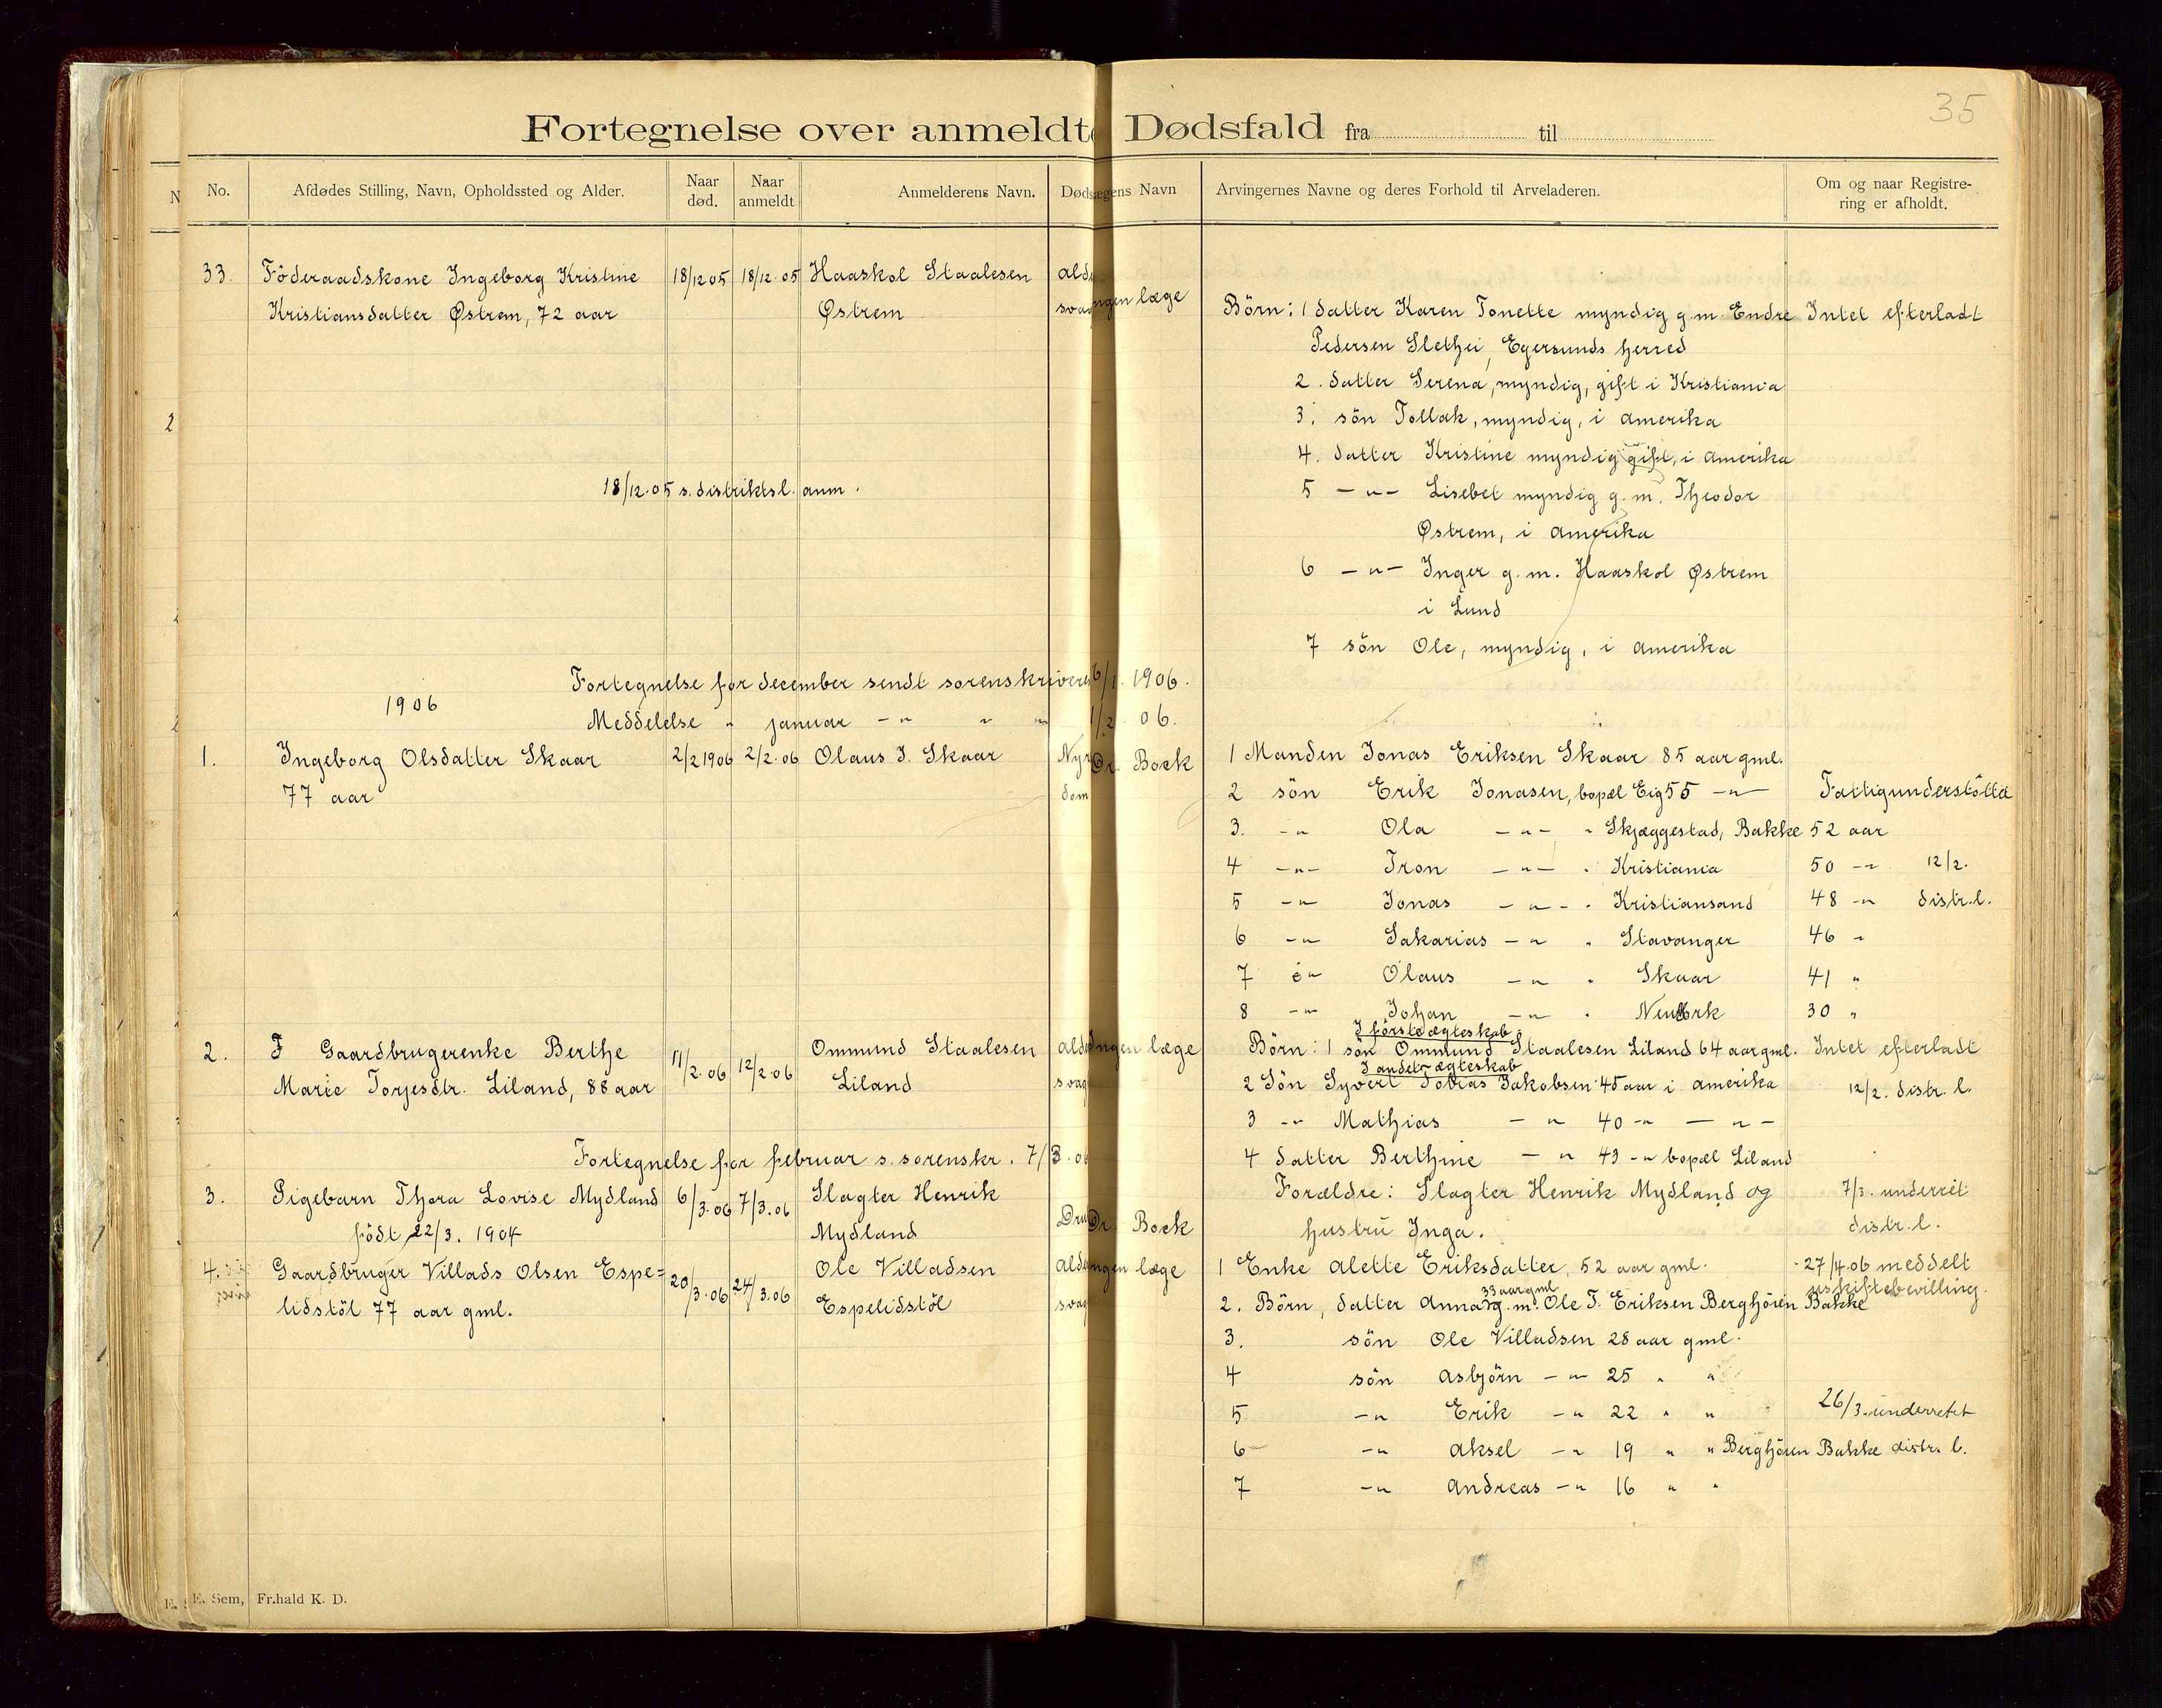 35
Fortegnelse over anmeldte Dødsfald fra til
No.
Afdødes Stilling, Navn, Opholdssted og Alder.
Naar død.
Naar anmeldt
Anmelderens Navn.
Døds ægens Navn
Arvingernes Navne og deres Forhold til Arveladeren.
Om og naar Registre-
ring er afholdt.
33. Föderaadskone Ingeborg Kristine 18/12 05 18/12.05 Haaskol Staalesen
Kristiansdatter Østrem, 72 aar Østrem ingen læge
Börn: 1 datter Karen Tonette myndig g.m. Endre Intet efterladt
Pedersen Slethei, Egersunds herred
2. datter Serena, myndig, gift i Kristiania
3. sön Tollak, myndig, i amerika
4. datter Kristine myndig gift, i amerika
18/12.05 s. distriktsl. anm.
5 -"- Lisebet myndig g.m. Theodor
Østrem, i amerika
6 -"- Inger g.m. Haaskol Østrem
i Lund
7 sön Ole, myndig, i amerika
Fortegnelse for december sendt sorenskriveren 6/1. 1906.
1906
Meddelelse " januar -" " " 1/2. 06.
1. Ingeborg Olsdatter Skaar 2/2 1906 2/2.06 Olaus J. Skaar Dr. Bock
77 aar
1 Manden Jonas Eriksen Skaar 85 aar gml.
2 sön Erik Jonasen, bopæl Eig 55 -"- Fattigunderstöttet
3. -" Ola -"- " Skjæggestad, Bakke 52 aar
4 -"- Tron -"- " Kristiania 50 -" 12/2.
5 -" Jonas -"- " Kristiansand 48 -" distr.l.
6 -" Sakarias -" " Stavanger 46 "
7 -" Olaus -" " Skaar 41 "
8 -" Johan -" " Newyork 30 "
2. Gaardbrugerenke Berthe 11/2.06 12/2.06 Ommund Staalesen ingen læge
Marie Torjesdtr. Liland, 88 aar Liland
I förste ægteskab
Börn: 1 sön Ommund Staalesen Liland 64 aar gml. Intet efterladt
I andet ægteskab
2 Sön Syvert Tobias Jakobsen 45 aar i amerika 12/2. distr. l.
3 -" Mathias -" 40 -" -"-
Fortegnelse for februar s. sorenskr. 7/3.06
4 datter Berthine -" 43 -" bopæl Liland
3. Pigebarn Thora Lovise Mydland 6/3.06 7/3.06 Slagter Henrik
född 22/3. 1904 Mydland Dr. Bock
Forældre: Slagter Henrik Mydland og 7/3. underret
hustru Inga. distr. l.
4. Gaardbruger Villads Olsen Espe= 20/3.06 24/3.06 Ole Villadsen ingen læge
lidstöl 77 aar gml. Espelidstöl
1 Enke alette Eriksdatter, 52 aar gml. 27/4.06 meddelt
uskiftebevilling.
33 aar gml
2. Börn, datter Anna g.m. Ole T. Eriksen Berghöien Bakke
3. sön Ole Villadsen 28 aar gml.
4 sön asbjörn -" 25 " "
5 -" Erik -" 22 " " 26/3. underrettet
6 -" aksel -" 19 " " Berghöien Bakke distr. l.
7 -" andreas -" 16 " "
E. Sem, Fr.hald K. D.